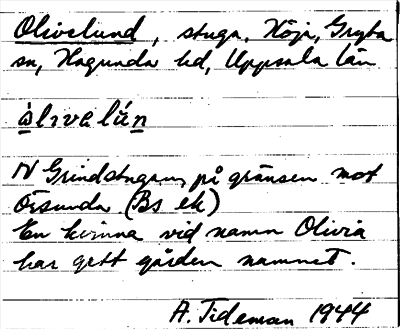 Olivelund, stuga, Höja, Gryta
sn, Hagunda hd, Uppsala län
òlivelún
N Grindstugan, på gränsen mot
Örsunda (Bs ek)
En kvinna vid namn Olivia
har gett gården namnet.
A. Tideman 1944